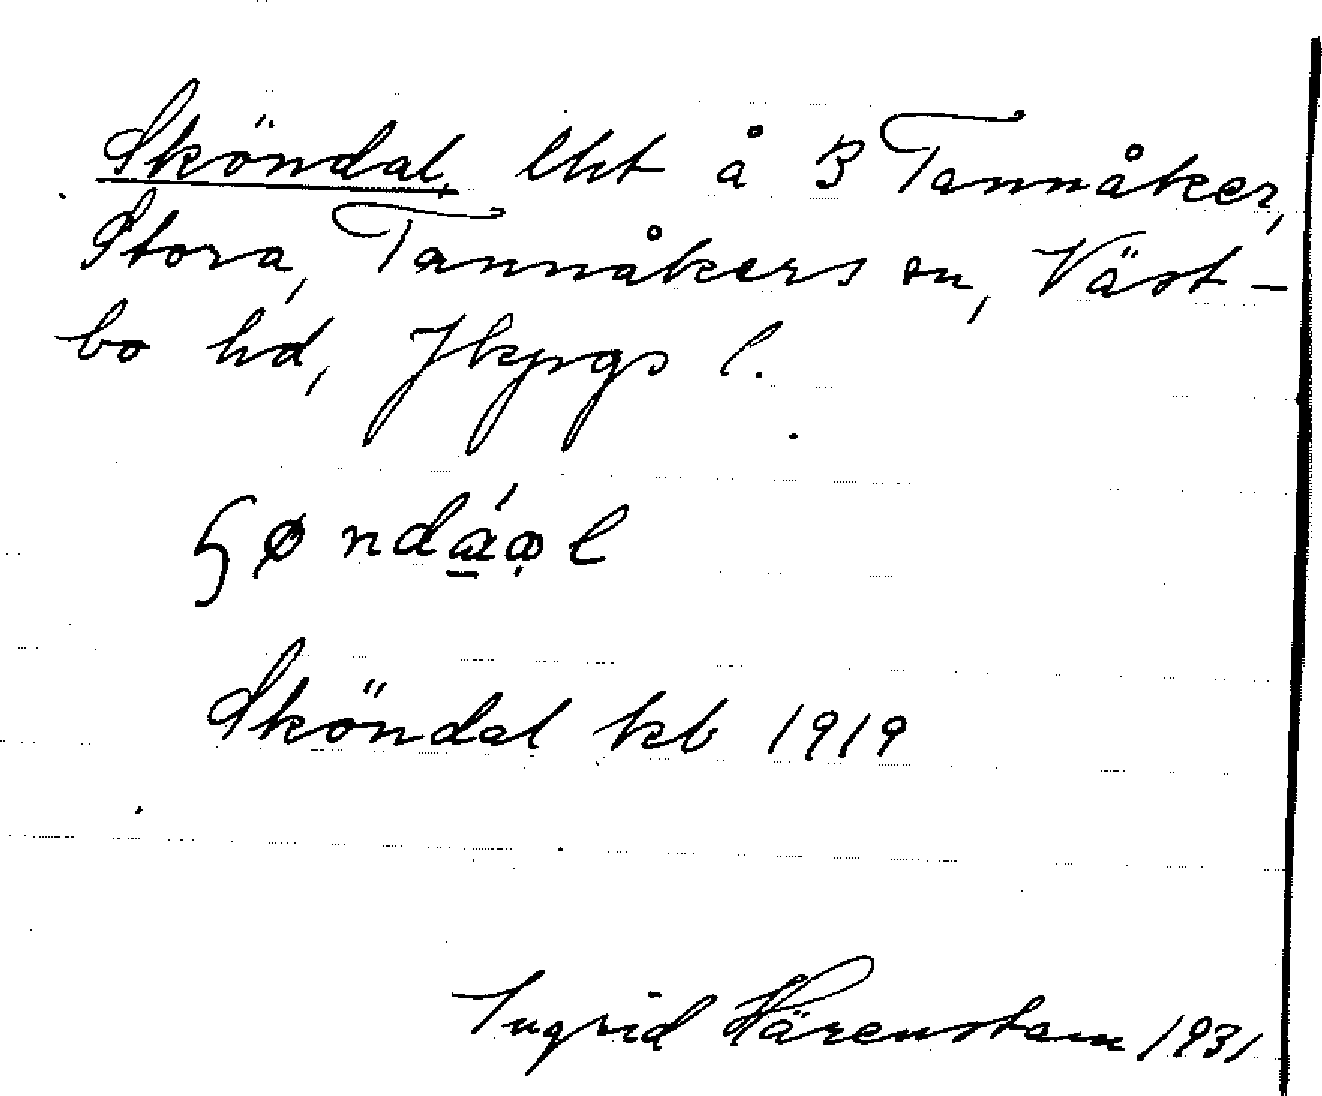 Sköndal, lht å 3 Tannåker,
Stora, Tannåkers sn, Väst-
bo hd, Jkpgs l.
Sköndal kb 1919
Ingrid Härenstam 1931